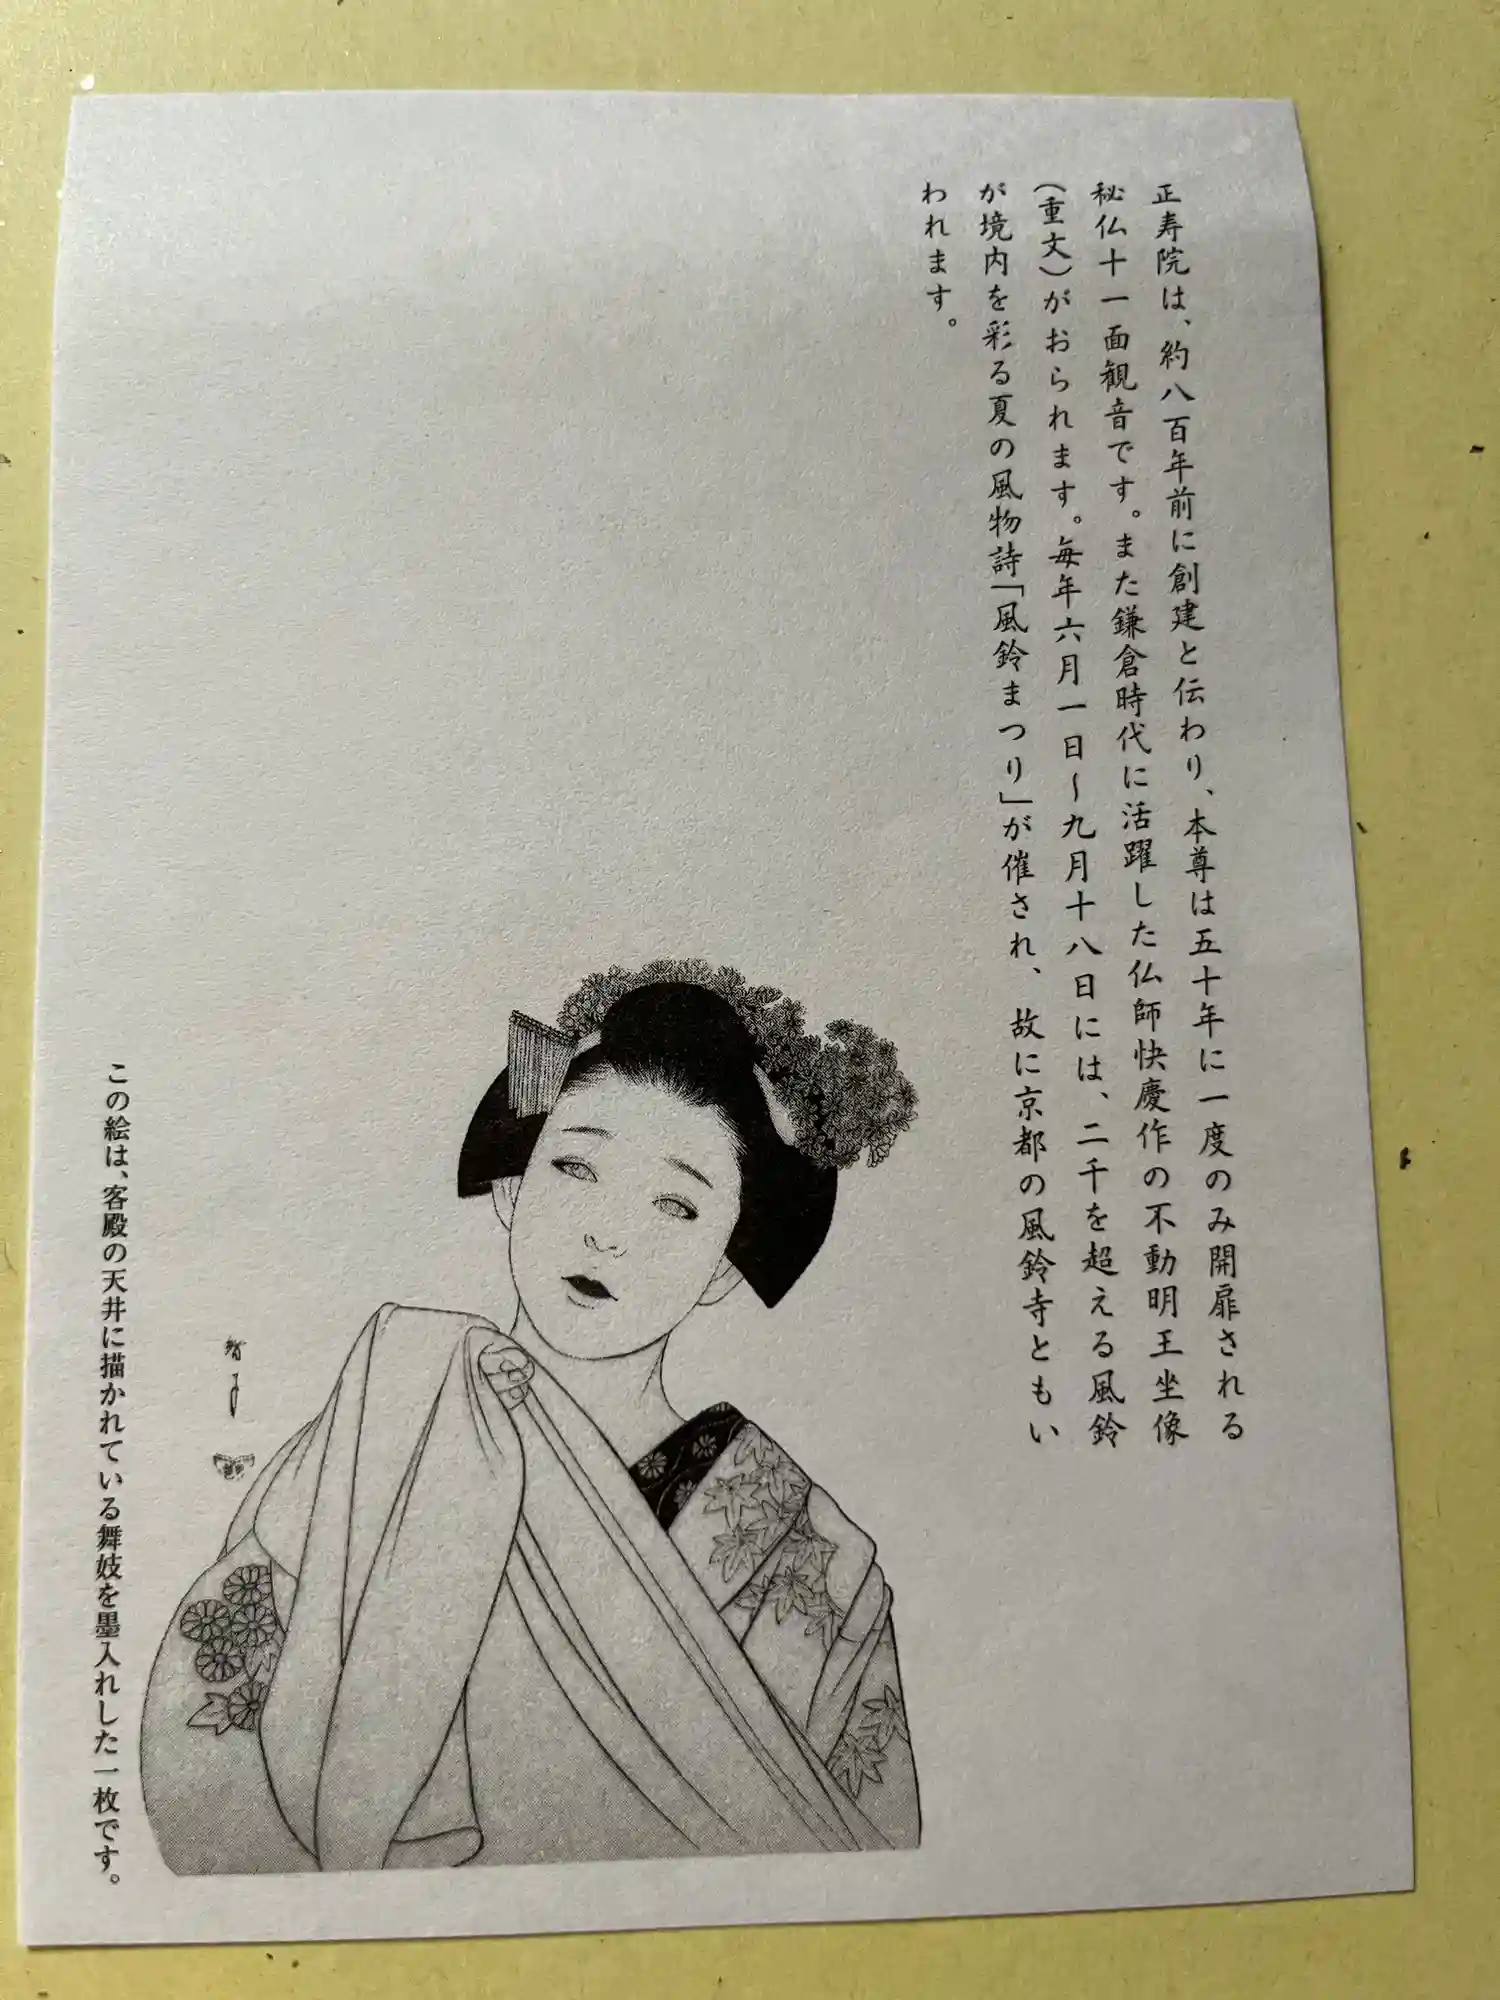 正寿院は、約八百年前に創建と伝わり、本尊は五十年に一度のみ開扉される
秘仏十一面観音です。また鎌倉時代に活躍した仏師快慶作の不動明王坐像
(重文)がおられます。毎年六月一日～九月十八日には、二千を超える風鈴
が境内を彩る夏の風物詩「風鈴まつり」が催され、故に京都の風鈴寺ともい
われます。
この絵は、客殿の天井に描かれている舞妓を墨入れした一枚です。